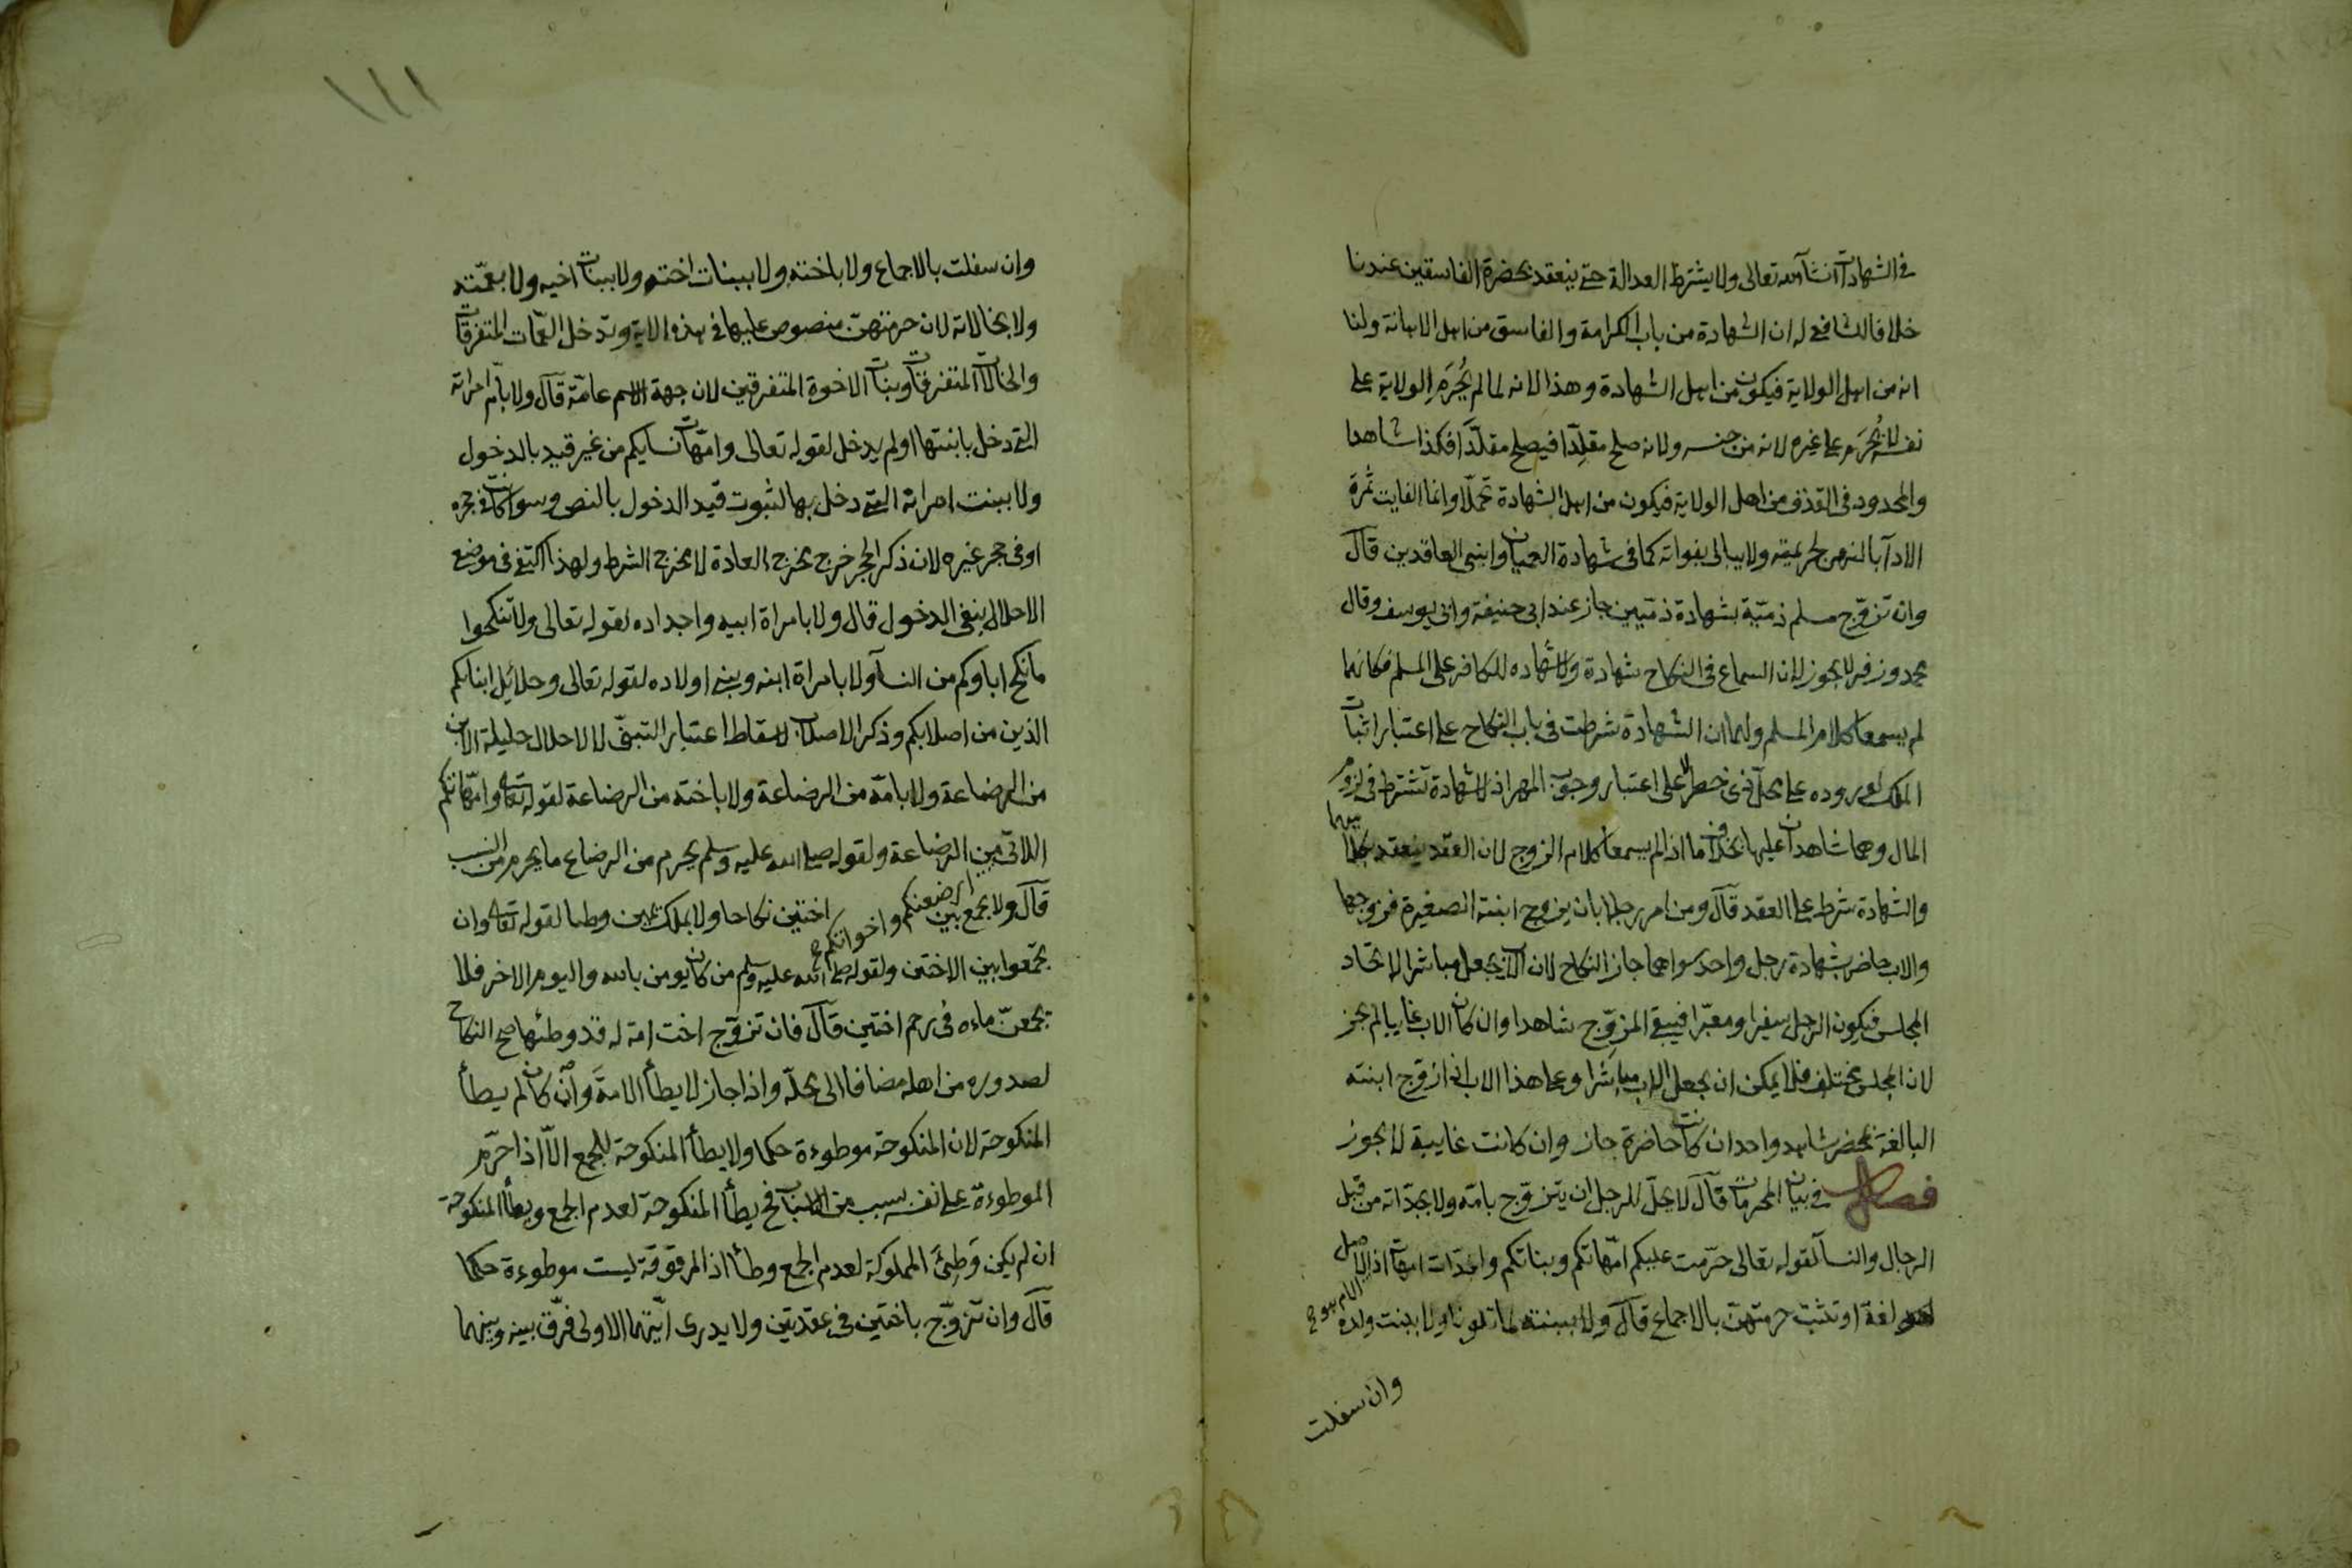 في الشهادات انشآ الله تعالى ولا يشترط العدالة حتى ينعقد بحضرة الفاسقين عندنا
خلافا للشافعي له ان الشهادة من باب الكرامة والفاسق من اهل الاهانة ولنا
انه من اهل الولاية فيكون من اهل الشهادة وهذا لانه لما لم يُحرَم الولاية على
نفسه لا يُحرَم على غيره لانه من جنسه ولانه صلح مقلِّدا فيصلح مقلَّدا فكذا شاهدا
والمحدود في القذف من اهل الولاية فيكون من اهل الشهادة تحمّلا وانما الفايت ثمرة
الادآ بالنهي لجريمته ولا يبالى بفواته كما في شهادة العميان وابني العاقدين قال
وان تزوّج مسلم ذميّة بشهادة ذميين جاز عند ابي حنيفة وابي يوسف وقال
محمد وزفر لا يجوز لان السماع في النكاح شهادة ولا شهاده للكافر على المسلم فكانهما
لم يسمعا كلام المسلم ولهما ان الشهادة شرطت في باب النكاح على اعتبار اثبات
الملك لوروده على محلّ ذي خطر لا على اعتبار وجوب المهر اذ لا شهادة تشترط في لزوم
المال وهما شاهدان عليها بخلاف ما اذا لم يسمعا كلام الزوج لان العقد ينعقد بكلاميهما
والشهادة شرط على العقد قال ومن امر رجلا بان يزوج ابنته الصغيرة فزوجها
والاب حاضر بشهادة رجل واحد سواهما جاز النكاح لان الاب يجعل مباشرا لاتحاد
المجلس فيكون الرجل سفيرا ومعبّرا فيبقى المزوِّج شاهدا وان كان الاب غايبا لم يجز
لان المجلس مختلف فلا يمكن ان يجعل الاب مباشرا وعلى هذا الاب اذا زوج ابنته
البالغة بمحضر شاهد واحد ان كانت حاضرة جاز وان كانت غايبة لا يجوز
فصل في بيان المحرمات قال لا يحلّ للرجل ان يتزوج بامّه ولا بجدّاته من قبل
الرجال والنسآ لقوله تعالى حرّمت عليكم امّهاتكم وبناتكم والجدّات امهات اذ الاصل
الام هو
لغة او تثبت حرمتهنّ بالاجماع قال ولا ببنته لما تلونا ولا ببنت ولده
وان سفلت
١١١
وان سفلت بالاجماع ولا باخته ولا ببنات اخته ولا ببنات اخيه ولا بعمّته
ولا بخالاته لان حرمتهنّ منصوص عليها في هذه الاية وتدخل العمّات المتفرقات
والخالات المتفرقات وبنات الاخوة المتفرقين لان جهة الاسم عامّة قال ولا بامّ امراته
التي دخل بابنتها او لم يدخل لقوله تعالى وامّهات نسايكم من غير قيد بالدخول
ولا ببنت امراته التي دخل بها لثبوت قيد الدخول بالنص وسوا كانت في حجره
او في حجر غيره لان ذكر الحجر خرج مخرج العادة لا مخرج الشرط ولهذا اكتفى في موضع
الاحلال بنفي الدخول قال ولا بامراة ابيه واجداده لقوله تعالى ولا تنكحوا
ما نكح اباوكم من النسآ ولا بامراة ابنه وبني اولاده لقوله تعالى وحلائل ابنائكم
الذين من اصلابكم وذكر الاصلاب لاسقاط اعتبار التبنّي لا لاحلال حليلة الابن
من الرضاعة ولا بامّه من الرضاعة ولا باخته من الرضاعة لقوله تعالى وامّهاتكم
اللاتي ارضعنكم واخواتكم من الرضاعة ولقوله صلى الله عليه وسلم يحرم من الرضاع ما يحرم من النسب
قال ولا يجمع بين اختين نكاحا ولا بملك يمين وطئا لقوله تعالى وان
تجمعوا بين الاختين ولقوله صلى الله عليه وسلم من كان يومن بالله واليوم الاخر فلا
يجمعنّ ماءه في رحم اختين قال فان تزوّج اخت امة له قد وطئها صح النكاح
لصدوره من اهله مضافا الى محلّه واذا جاز لا يطأ الامةَ وان كان لم يطأ
المنكوحة لان المنكوحة موطوءة حكما ولا يطأ المنكوحة للجمع الّا اذا حرّم
الموطوءة على نفسه بسبب من الاسباب فح يطأ المنكوحة لعدم الجمع ويطأ المنكوحة
ان لم يكن وَطِئَ المملوكة لعدم الجمع وطأ اذ المرقوقة ليست موطوءة حكما
قال وان تزوّج باختين في عقدتين ولا يدرى ايّتهما الاولى فرّق بينه وبينهما